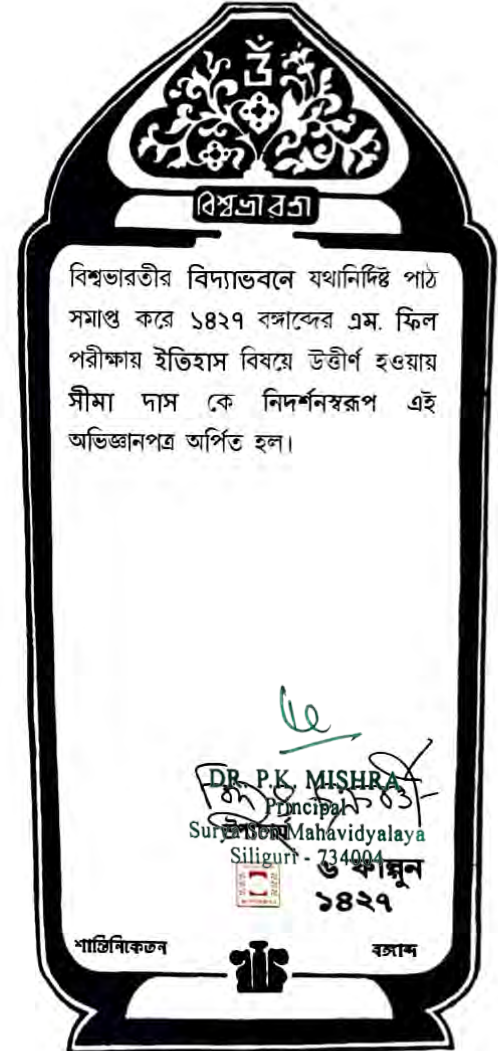 ওঁ
বিশ্বভারতী
বিশ্বভারতীর বিদ্যাভবনে যথানির্দিষ্ট পাঠ
সমাপ্ত করে ১৪২৭ বঙ্গাব্দের এম. ফিল
পরীক্ষায় ইতিহাস বিষয়ে উত্তীর্ণ হওয়ায়
সীমা দাস কে নিদর্শনস্বরূপ এই
অভিজ্ঞানপত্র অর্পিত হল।
DR. P.K. MISHRA
Principal
উপাচার্য
Surya Sen Mahavidyalaya
Siliguri - 734004
৬ ফাল্গুন
১৪২৭
শান্তিনিকেতন
বঙ্গাব্দ